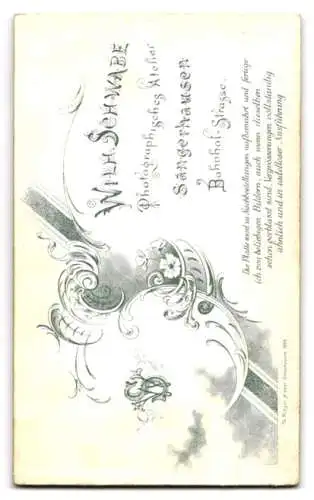 WILH. SCHWABE
Photographisches Atelier
Sangerhausen
Bahnhof-Strasse.
Die Platte wird zu Nachbestellungen aufbewahrt und fertige
ich von beliebigen Bildern, auch wenn dieselben
schon verblasst sind, Vergrösserungen vollständig
ähnlich und in tadelloser Ausführung.
WS